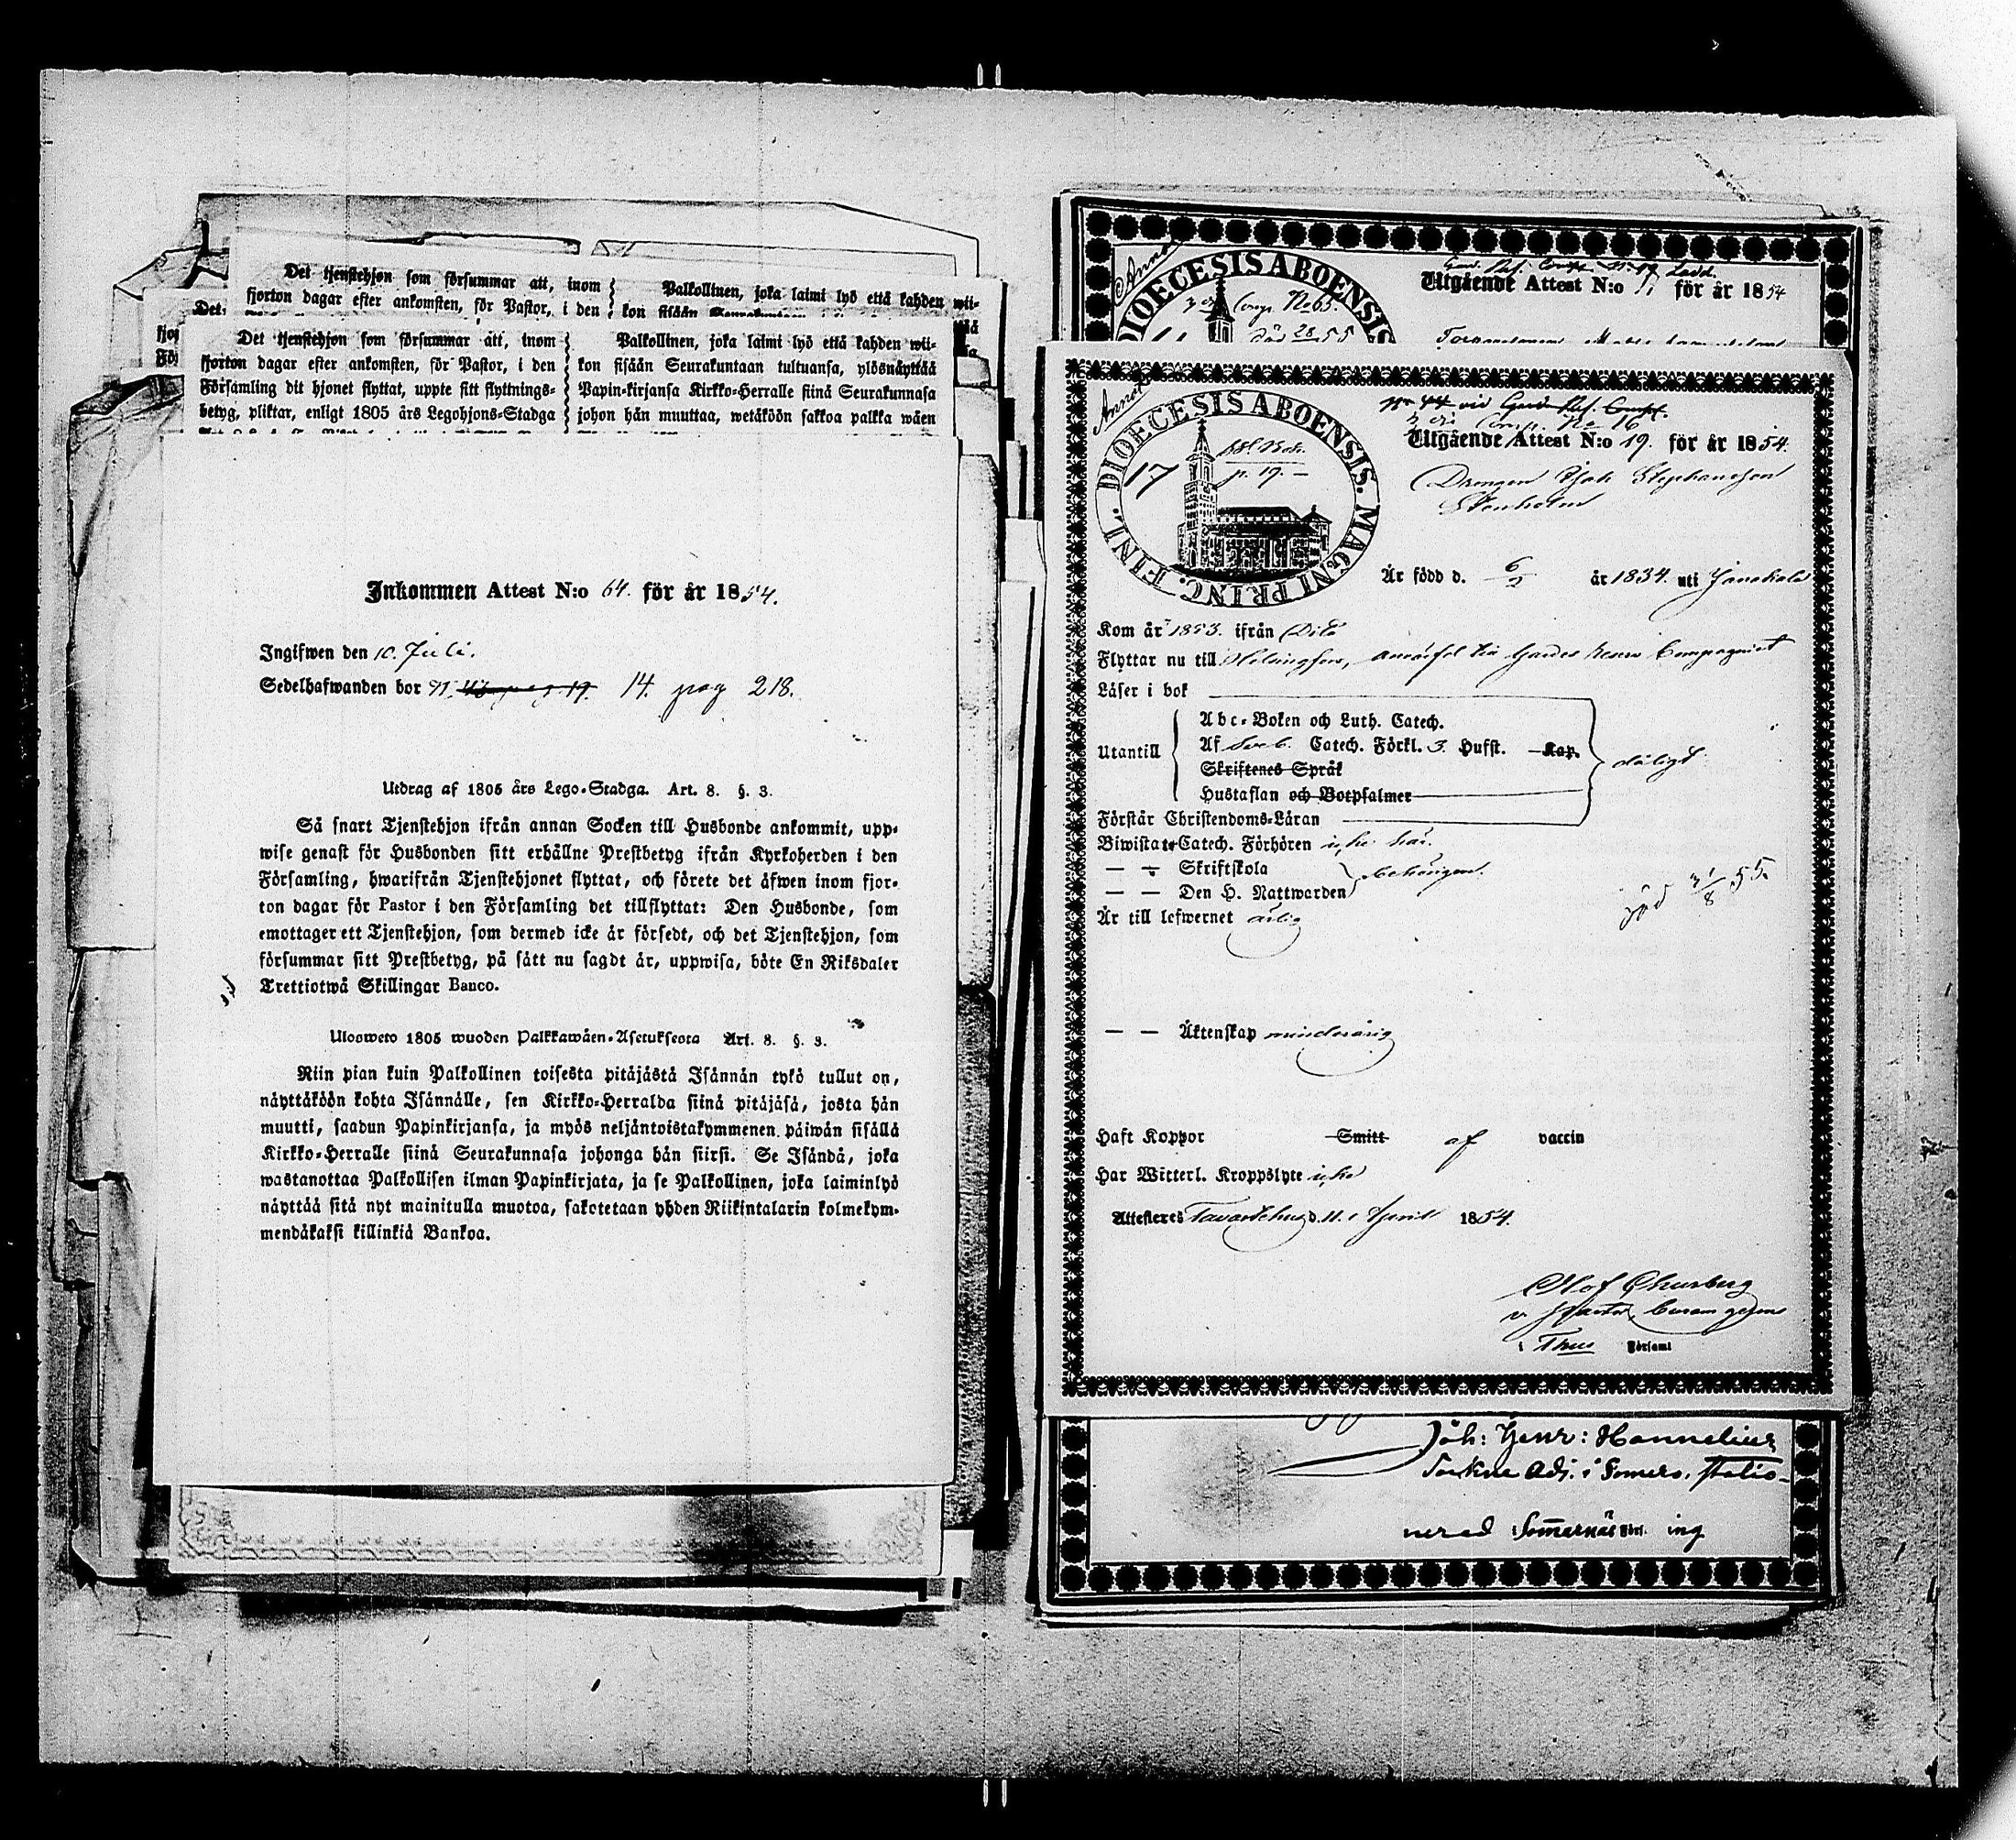 Det tjenstehjon som försummar att, inom
fjorton dagar efter ankomsten, för Pastor, i den
Palkollinen, joka laimi lyö että kahden wii-
kon sisään
Det tjenstehjon som försummar att, inom
fjorton dagar efter ankomsten, för Pastor, i den
Församling dit hjonet flyttat, uppte sitt flyttnings-
betyg, pliktar, enligt 1805 års Legohjons-Stadga
Palkollinen, joka laimi lyö että kahden wii-
kon sisään Seurakuntaan tultuansa, ylösnäyttää
Papin-kirjansa Kirkko-Herralle siinä Seurakunnasa
johon hän muuttaa, wetäköön sakkoa palkka wäen
Inkommen Attest N:o 64. för år 1854.
Ingifwen den 10. Juli.
Sedelhafwanden bor 14. pag 218.
Utdrag af 1805 års Lego-Stadga. Art. 8. §. 3.
Så snart Tjenstehjon ifrån annan Socken till Husbonde ankommit, upp-
wise genast för Husbonden sitt erhållne Prestbetyg ifrån Kyrkoherden i den
Församling, hwarifrån Tjenstehjonet flyttat, och förete det äfwen inom fjor-
ton dagar för Pastor i den Församling det tillflyttat: Den Husbonde, som
emottager ett Tjenstehjon, som dermed icke är försedt, och det Tjenstehjon, som
försummar sitt Prestbetyg, på sätt nu sagdt är, uppwisa, böte En Riksdaler
Trettiotwå Skillingar Banco.
Ulosweto 1805 wuoden Palkkawäen-Asetuksesta Art. 8. §. 3.
Niin pian kuin Palkollinen toisesta pitäjästä Isännän tykö tullut on,
näyttäköön kohta Isännälle, sen Kirkko-Herralda siinä pitäjäsä, josta hän
muutti, saadun Papinkirjansa, ja myös neljäntoistakymmenen päiwän sisällä
Kirkko-Herralle siinä Seurakunnasa johonga hän siirsi. Se Isändä, joka
wastanottaa Palkollisen ilman Papinkirjata, ja se Palkollinen, joka laiminlyö
näyttää sitä nyt mainitulla muotoa, sakotetaan yhden Riikintalarin kolmekym-
mendäkaksi killinkiä Bankoa.
DIOECESIS ABOENSIS
Utgående Attest N:o för år 1854
DIOECESIS ABOENSIS. MAGNI PRINC. FINL.
17
p. 19.
Utgående Attest N:o 19. för år 1854.
Drengen Isak Stephansson
Stenholm
Är född d. 6/2 år 1834. uti Janakala
Kom år 1853. ifrån Dito
Flyttar nu till Helsingfors,
Läser i bok
Utantill
Abc-Boken och Luth. Catech.
Af Catech. Förkl. 3. Hufst. Kap.
Skriftenes Språk
Hustaflan och Botpsalmer
dåligt
Förstår Christendoms-Läran
Biwistat Catech. Förhören icke här.
— — Skriftskola
— — Den H. Nattwarden
behörigen.
Är till lefwernet ärlig
död 31/8 55.
— — Äktenskap minderårig
Haft Koppor Smitt af vaccin
Har Witterl. Kroppslyte icke
Attesteres Tavastehus d. 11. April 1854.
Olof Churberg
v. Pastor,
i Thus Församl
Joh: Henr: Hannelius
Sockne Adj. i Somero, statio-
nerad i Somernäs Församl. ing